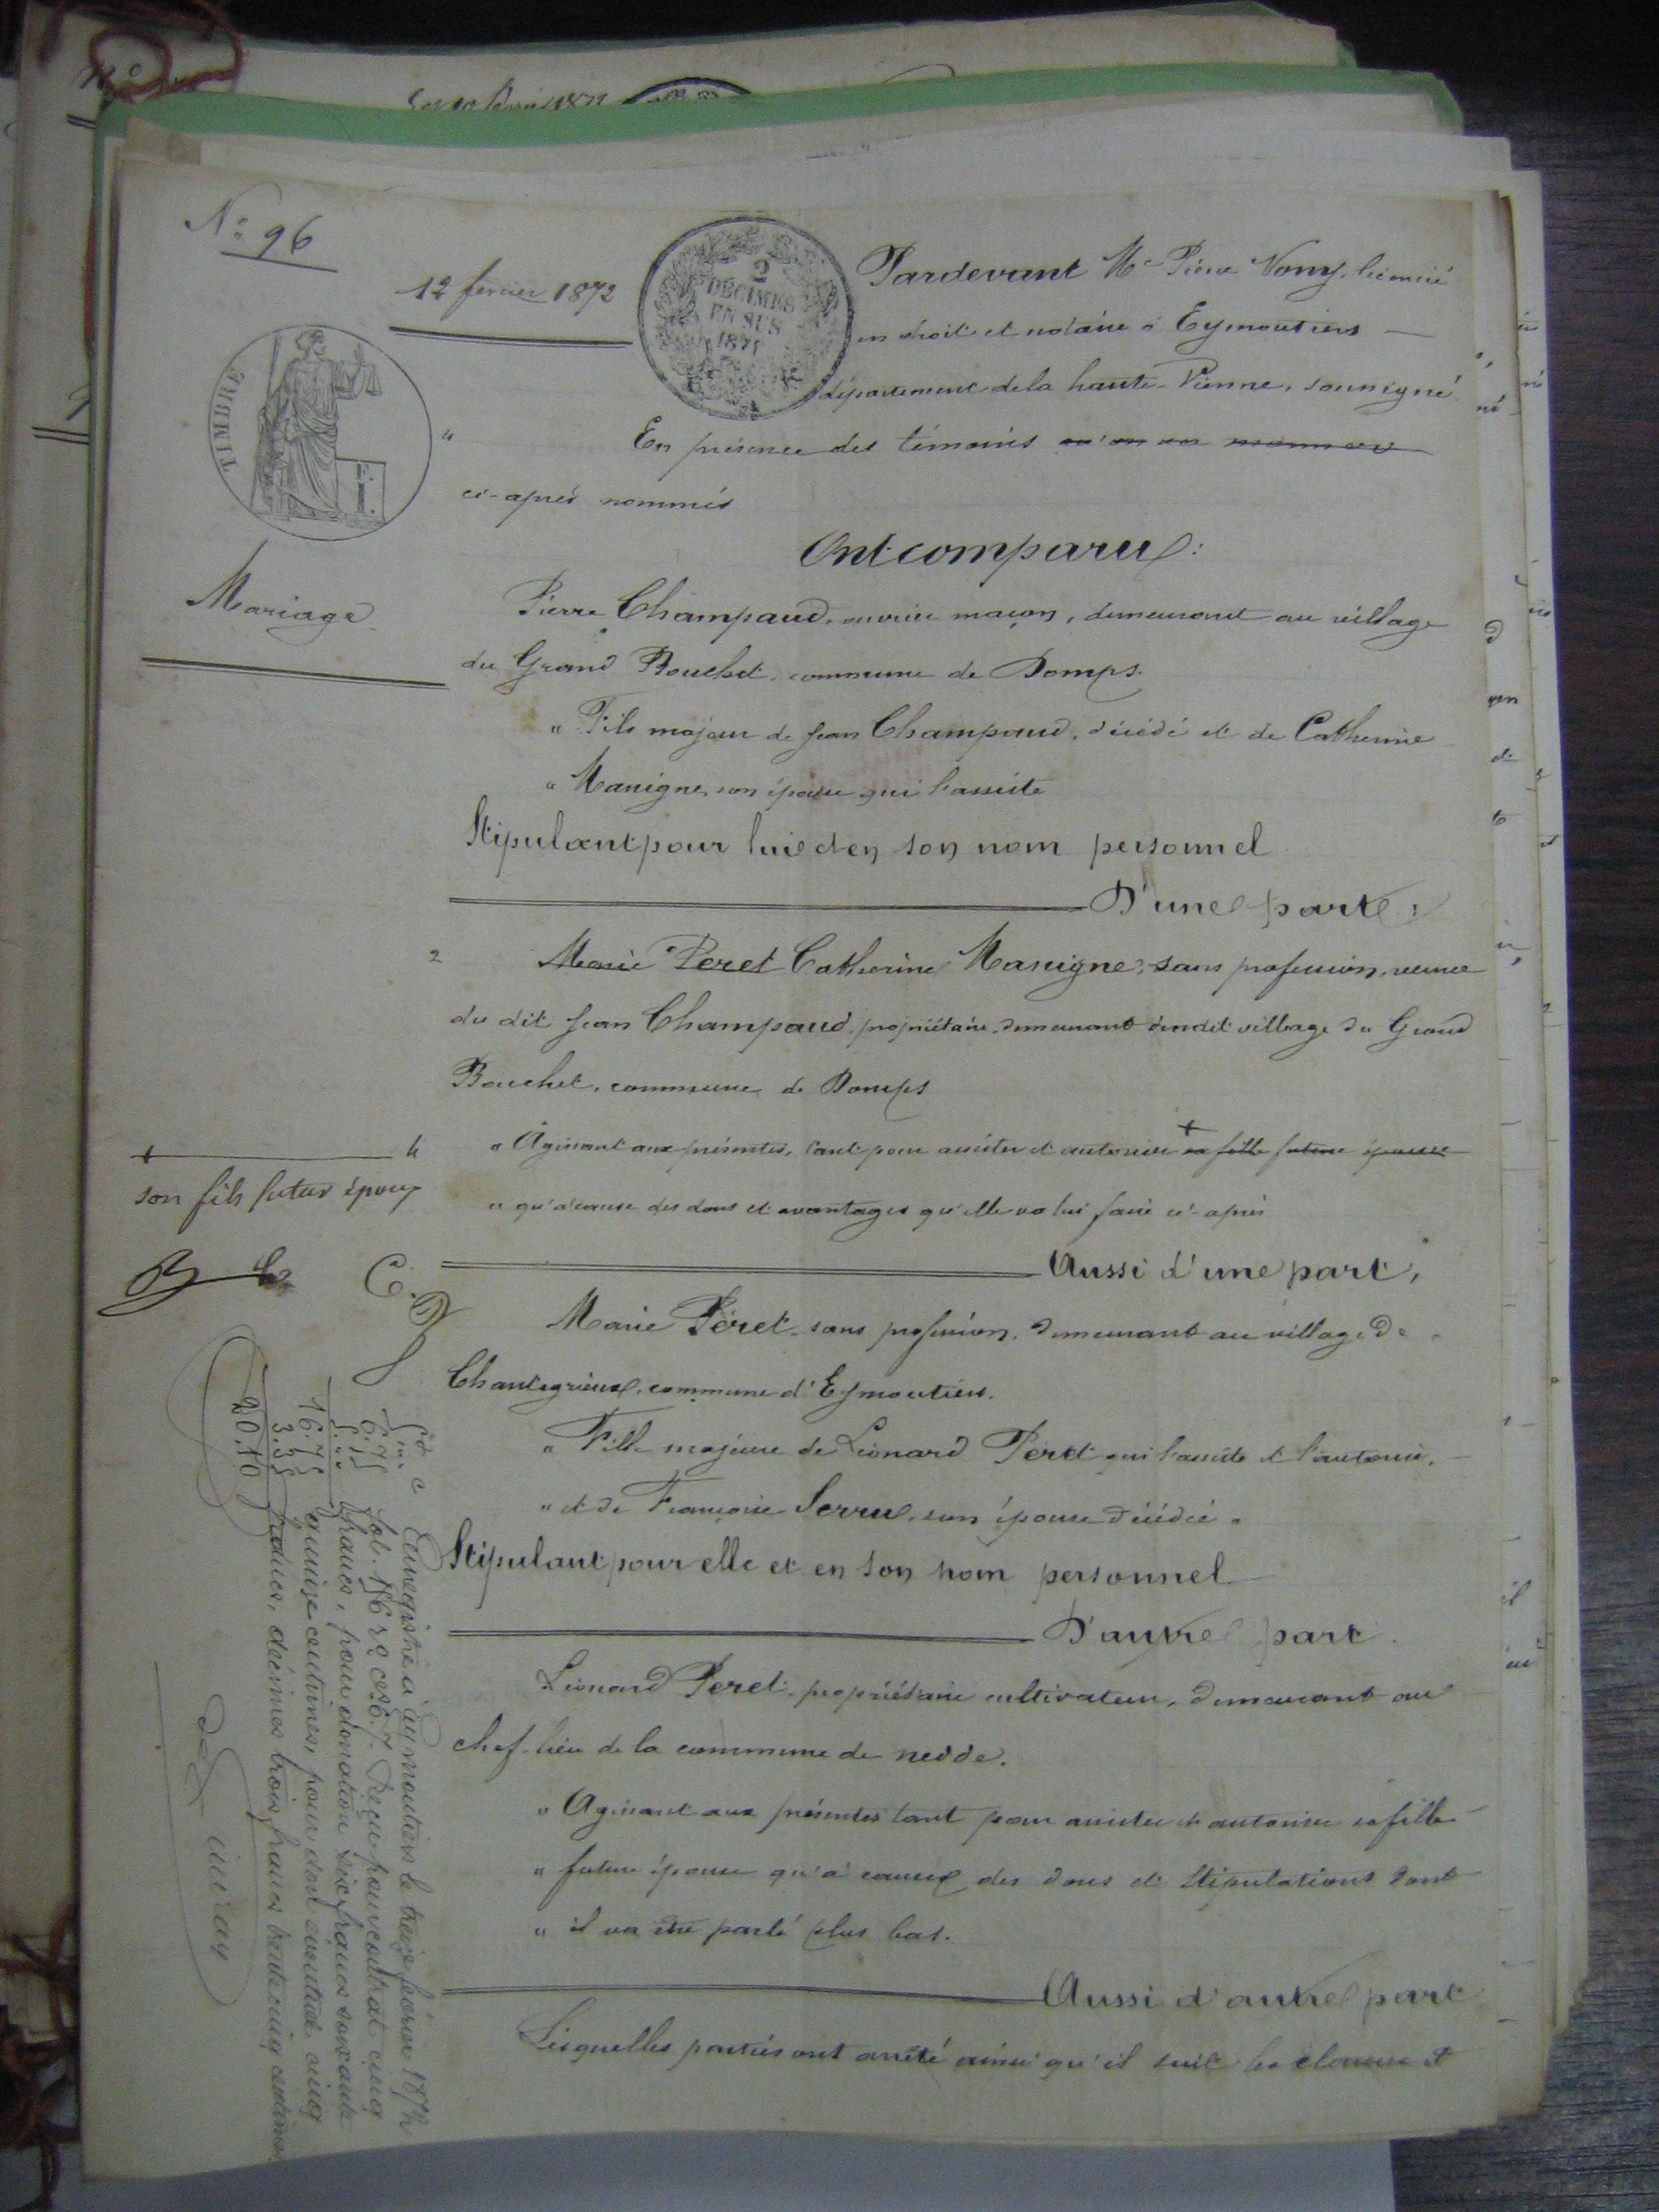 N° 96
12 février 1872
TIMBRE
I.F.
2
DECIMES
EN SUS
1871
Mariage
Pardevant Me Pierre licencié
en droit et notaire à Eymoutiers
département de la haute Vienne, soussigné
En présence des témoins
ci-après nommés
Ont comparu:
Pierre Champaud, ouvrier maçon, demeurant au village
du Grand Bouchet, commune de Domps.
" Fils majeur de Jean Champaud, décédé et de Catherine
" Manigne, son épouse qui l'assiste
Stipulant pour lui et en son nom personnel
D'une part;
2 Catherine Manigne, sans profession, veuve
du dit Jean Champaud, propriétaire, demeurant au dit village du Grand
Bouchet, commune de Domps
" Agissant aux présentes, tant pour assister et autoriser + sa fille future épouse
" qu'à cause des dons et avantages qu'elle va lui faire ci-après
+
son fils, futur époux
Aussi d'une part;
Marie Péret, sans profession, demeurant au village de
commune d'Eymoutiers.
" Fille majeure de Léonard Péret qui l'assiste et l'autorise.
" et de Françoise Serru, son épouse décédée "
Stipulant pour elle et en son nom personnel
D'autre part.
Léonard Péret, propriétaire cultivateur, demeurant au
chef lieu de la commune de nedde.
" Agissant aux présentes tant pour assister et autoriser sa fille
" future épouse qu'à cause des dons et stipulations dont
" il va être parlé plus bas.
Aussi d'autre part
Lesquelles parties ont arrêté ainsi qu'il suit les clauses et
Enregistré à Eymoutiers le treize février 1872
fol. 156 r° cases 6.7. Reçu pour contrat cinq
francs, pour donation six francs soixante
quinze centimes, pour don éventuel cinq
francs, décimes trois francs trente cinq centimes
5. "
6.75
5. "
16.75
3.35
20.10